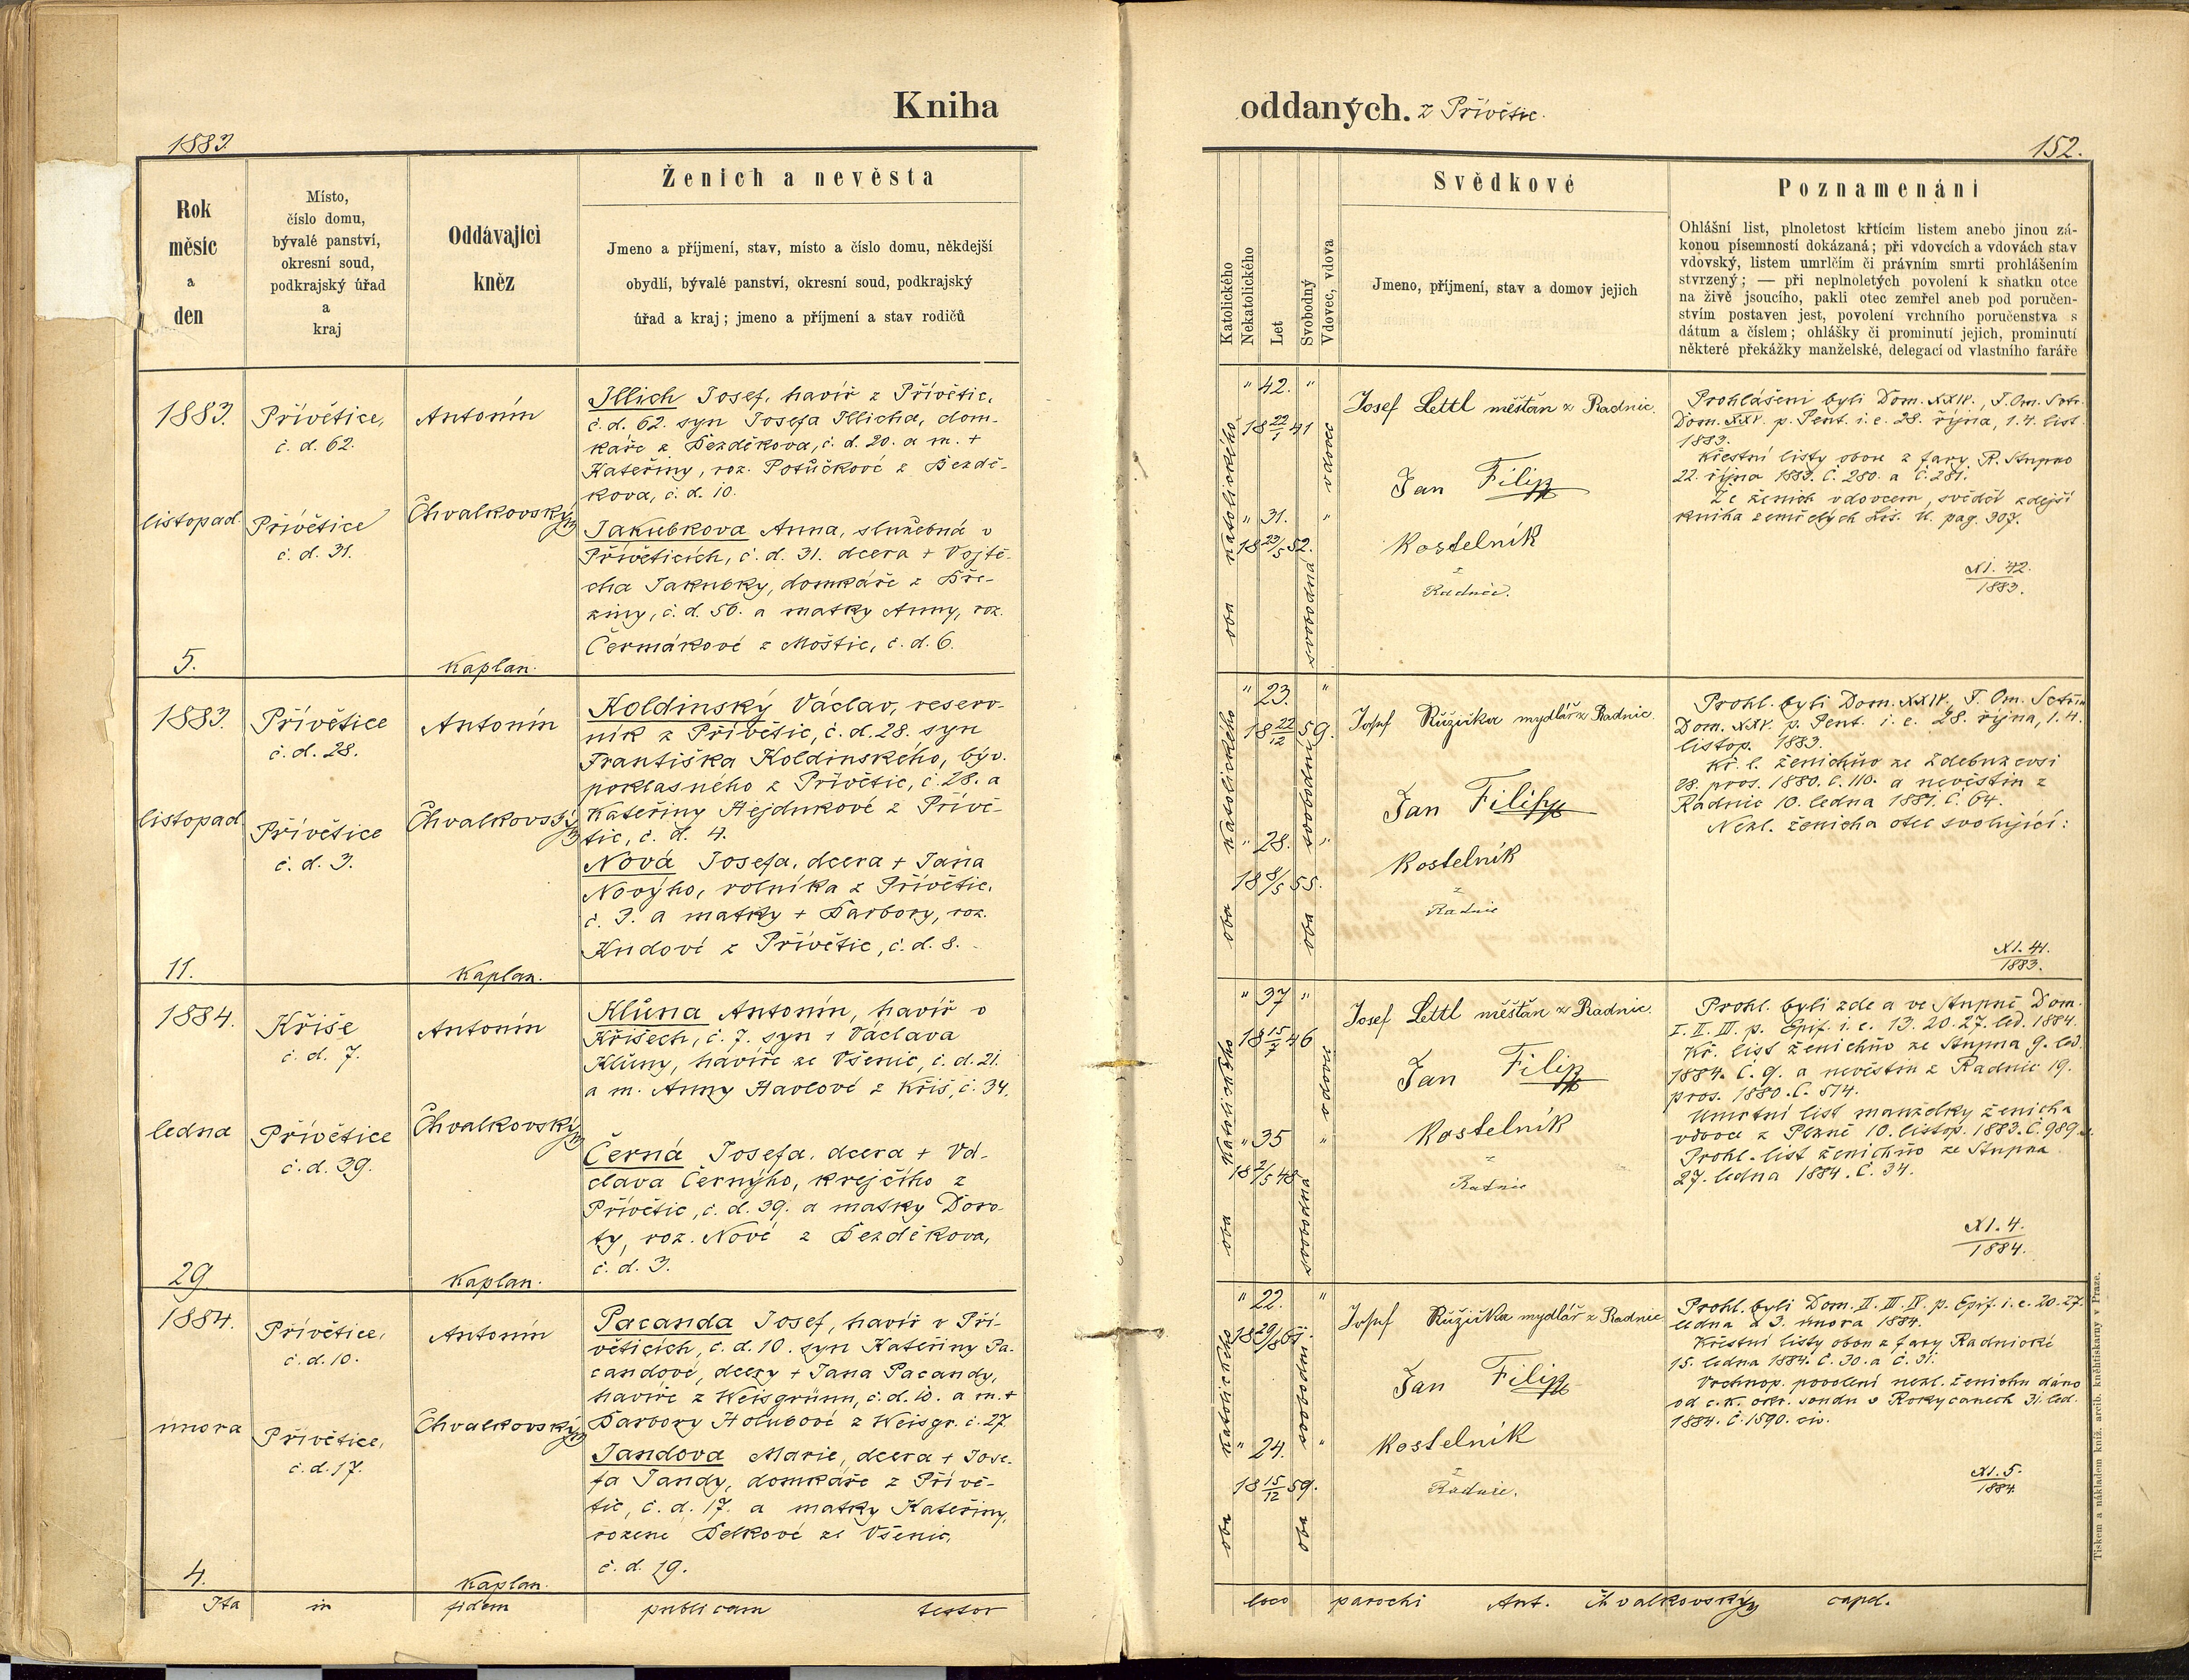 Kniha
oddaných. z Přívětic.
1883.
152.
Rok
měsíc
a
den
Místo,
číslo domu,
bývalé panství,
okresní soud,
podkrajský úřad
a
kraj
Oddávající
kněz
Ženich a nevěsta
Jmeno a příjmení, stav, místo a číslo domu, někdejší
obydlí, bývalé panství, okresní soud, podkrajský
úřad a kraj; jmeno a příjmení a stav rodičů
Katolického
Nekatolického
Let
Svobodný
Vdovec, vdova
Svědkové
Jmeno, příjmení, stav a domov jejich
Poznamenání
Ohlášní list, plnoletost křtícím listem anebo jinou zá-
konou písemností dokázaná; při vdovcích a vdovách stav
vdovský, listem umrlčím či právním smrti prohlášením
stvrzený; — při neplnoletých povolení k sňatku otce
na živě jsoucího, pakli otec zemřel aneb pod poručen-
stvím postaven jest, povolení vrchního poručenstva s
dátum a číslem; ohlášky či prominutí jejich, prominutí
některé překážky manželské, delegací od vlastního faráře
1883.
listopad.
5.
Přívětice,
č. d. 62.
Přívětice
č. d. 31.
Antonín
Chvalkovský
Kaplan.
Illich Josef, havíř z Přívětic,
č. d. 62. syn Josefa Illicha, dom-
káře z Bezděkova, č. d. 20. a m. +
Kateřiny, roz. Potůčkové z Bezdě-
kova, č. d. 10.
Jakubkova Anna, služebná v
Přívěticích, č. d. 31. dcera + Vojtě-
cha Jakubky, domkáře z Bře-
ziny, č. d. 56. a matky Anny, roz.
Čermákové z Moštic, č. d. 6.
oba katolického
" 42. "
18 22/1 41
vdovec
" 31. "
18 23/5 52.
svobodná
Josef Lettl měšťan z Radnic.
Jan Filip
Kostelník
z
Radnic.
Prohlášeni byli Dom. XXIV., F. Om. Sctr.
Dom. XXV. p. Pent. i. e. 28. října, 1. 4. list.
1883.
Křestní listy obou z fary R. Stupno
22. října 1883. Č. 280. a Č. 281.
Že ženich vdovcem, svědčí zdejší
kniha zemřelých Lis. U. pag. 307.
XI. 42.
1883.
1883.
listopad.
11.
Přívětice
č. d. 28.
Přívětice
č. d. 3.
Antonín
Chvalkovský
Kaplan.
Koldinský Václav, reserv-
ník z Přívětic, č. d. 28. syn
Františka Koldinského, býv.
poklasného z Přívětic, č. 28. a
Kateřiny Hejdukové z Přívě-
tic, č. d. 4.
Nová Josefa, dcera + Jana
Nového, rolníka z Přívětic,
č. 3. a matky + Barbory, roz.
Kudové z Přívětic, č. d. 8.
oba katolického
" 23. "
18 22/12 59.
" 28. "
18 8/5 55.
oba svobodní
Josef Růžička mydlář z Radnic.
Jan Filip
Kostelník
z
Radnic
Prohl. byli Dom. XXIV, F. Om. Sctům
Dom. XXV. p. Pent. i. e. 28. října, 1. 4.
listop. 1883.
Kř. l. ženichův ze Zdebuzevsi
28. pros. 1880. Č. 110. a nevěstin z
Radnic 10. ledna 1881. Č. 64.
Nezl. ženicha otec svolující:
XI. 41.
1883.
1884.
ledna
29.
Kříše
č. d. 7.
Přívětice
č. d. 39.
Antonín
Chvalkovský
Kaplan.
Klůna Antonín, havíř v
Kříšech, č. 7. syn + Václava
Klůny, havíře ze Všenic, č. d. 21.
a m. Anny Havlové z Kříš, č. 34.
Černá Josefa, dcera + Vá-
clava Černýho, krejčího z
Přívětic, č. d. 39. a matky Doro-
ty, roz. Nové z Bezděkova,
č. d. 3.
oba katolického
" 37 "
18 15/7 46
vdovec
" 35 "
18 2/5 48
svobodná
Josef Lettl měšťan z Radnic.
Jan Filip
Kostelník
z
Radnic
Prohl. byli zde a ve Stupně Dom.
I. II. III. p. Epif. i. e. 13. 20. 27. led. 1884.
Kř. list ženichův ze Stupna 9. led.
1884. Č. 9. a nevěstin z Radnic 19.
pros. 1880. Č. 514.
Umrtní list manželky ženicha
vdovce z Plzně 10. listop. 1883. Č. 989.
Prohl. list ženichův ze Stupna
27. ledna 1884. Č. 34.
XI. 4.
1884.
1884.
února
4.
Přívětice,
č. d. 10.
Přívětice,
č. d. 17.
Antonín
Chvalkovský
Kaplan.
Pacanda Josef, havíř v Pří-
věticích, č. d. 10. syn Kateřiny Pa-
candové, dcery + Jana Pacandy,
havíře z Weisgrünn, č. d. 10. a m. +
Barbory Holubové z Weisgr. č. 27.
Jandova Marie, dcera + Jose-
fa Jandy, domkáře z Přívě-
tic, č. d. 17. a matky Kateřiny,
rozene Belkové ze Všenic,
č. d. 19.
oba katolického
" 22. "
" 24. "
18 15/12 59.
oba svobodní
Josef Růžička mydlář z Radnic
Jan Filip
Kostelník
z
Radnic.
Prohl. byli Dom. II. III. IV. p. Epif. i. e. 20. 27.
ledna a 3. února 1884.
Křestní listy obou z fary Radnické
15. ledna 1884. Č. 30. a Č. 31.
Vrchnop. povolení nezl. ženichu dáno
od c. k. okr. soudu v Rokycanech 31. led.
1884. Č. 1590. civ.
XI. 5.
1884
Ita in fidem publicam testor
loco parochi Ant. Chvalkovský capel.
Tiskem a nákladem kníž. arcib. kněhtiskárny v Praze.